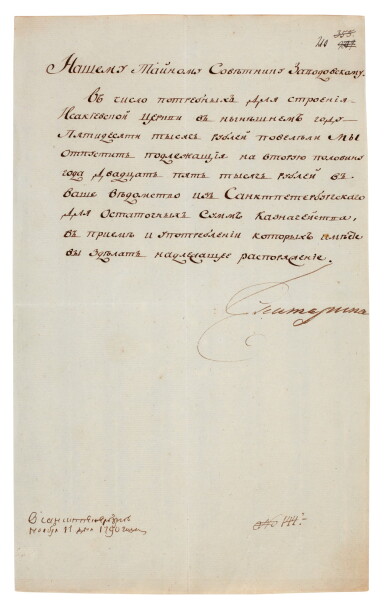 Нашему Тайному Совѣтнику Заводовскому.
Въ число потребныхъ для строенія
Исакіевской Церкви въ нынѣшнемъ годѣ
Пятидесяти тысячь рублей повелѣли Мы
отпустить подлежащія на вторую половину
года двадцать пять тысячь рублей въ
ваше вѣдомство изъ Санктпетербургскаго
для остаточныхъ суммъ Казначейства,
въ пріемѣ и употребленіи которыхъ имѣете
вы здѣлать надлежащее распоряженіе.
Екатерина
В
11 дня 1780 года